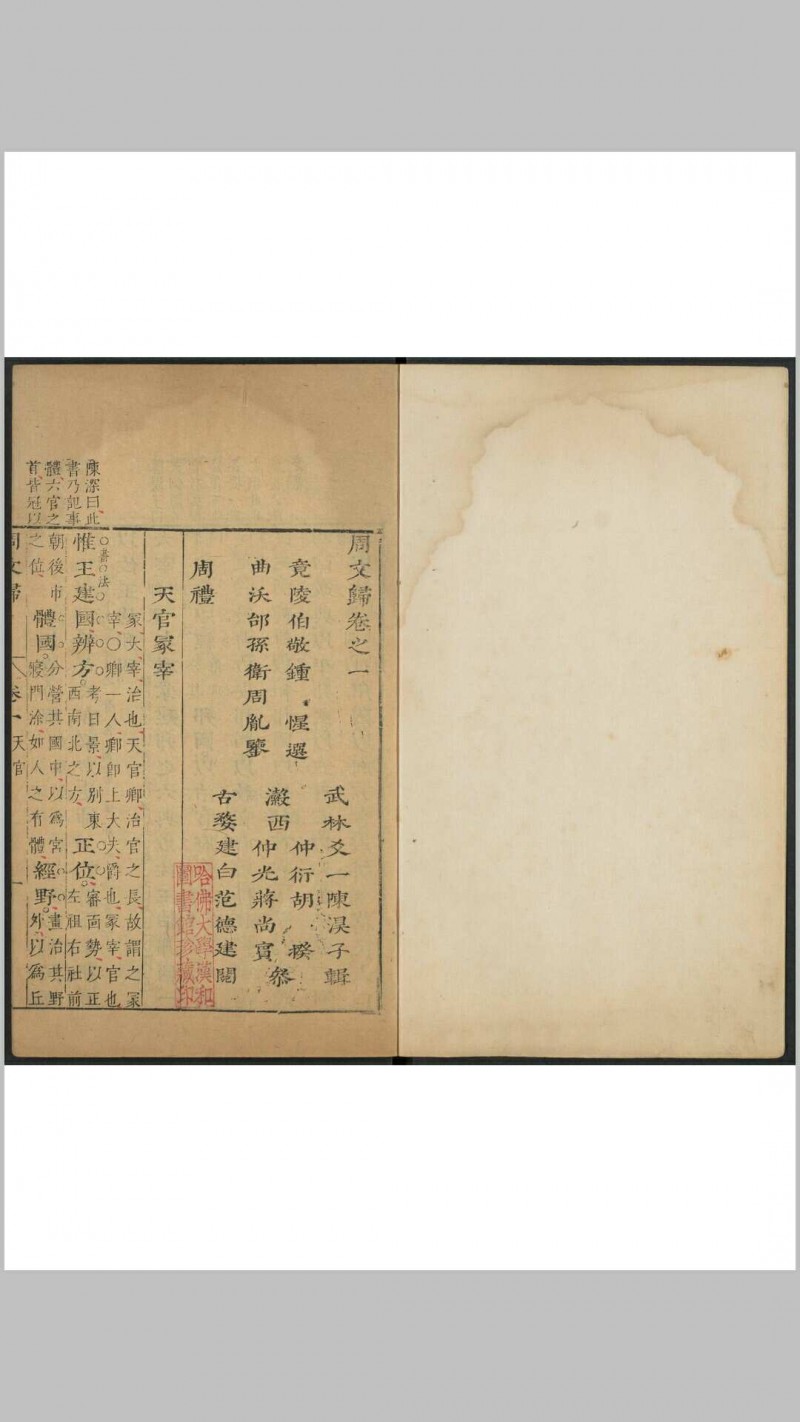 周文歸卷之一
竟陵伯敬鍾惺選
曲沃邰孫衛周胤鑒
武林爻一陳淏子輯
仲衍胡揆
瀫西仲光蔣尚賓參
古婺建白范德建閱
周禮
天官冢宰
冢大宰治也天官卿治官之長故謂之冢
宰○卿一人卿卽上大夫爵也冢宰官也
書法
惟王建國辨方考日景以別東西南北之方正位審面勢以正左祖右社前
朝後市之位體國分營其國中以為宮寢門涂如人之有體經野畫治其野外以為丘
陳深曰此
書乃記事
體六官之
首皆冠以
周文歸
卷一
天官
一
哈佛大學漢和
圖書館珍藏印